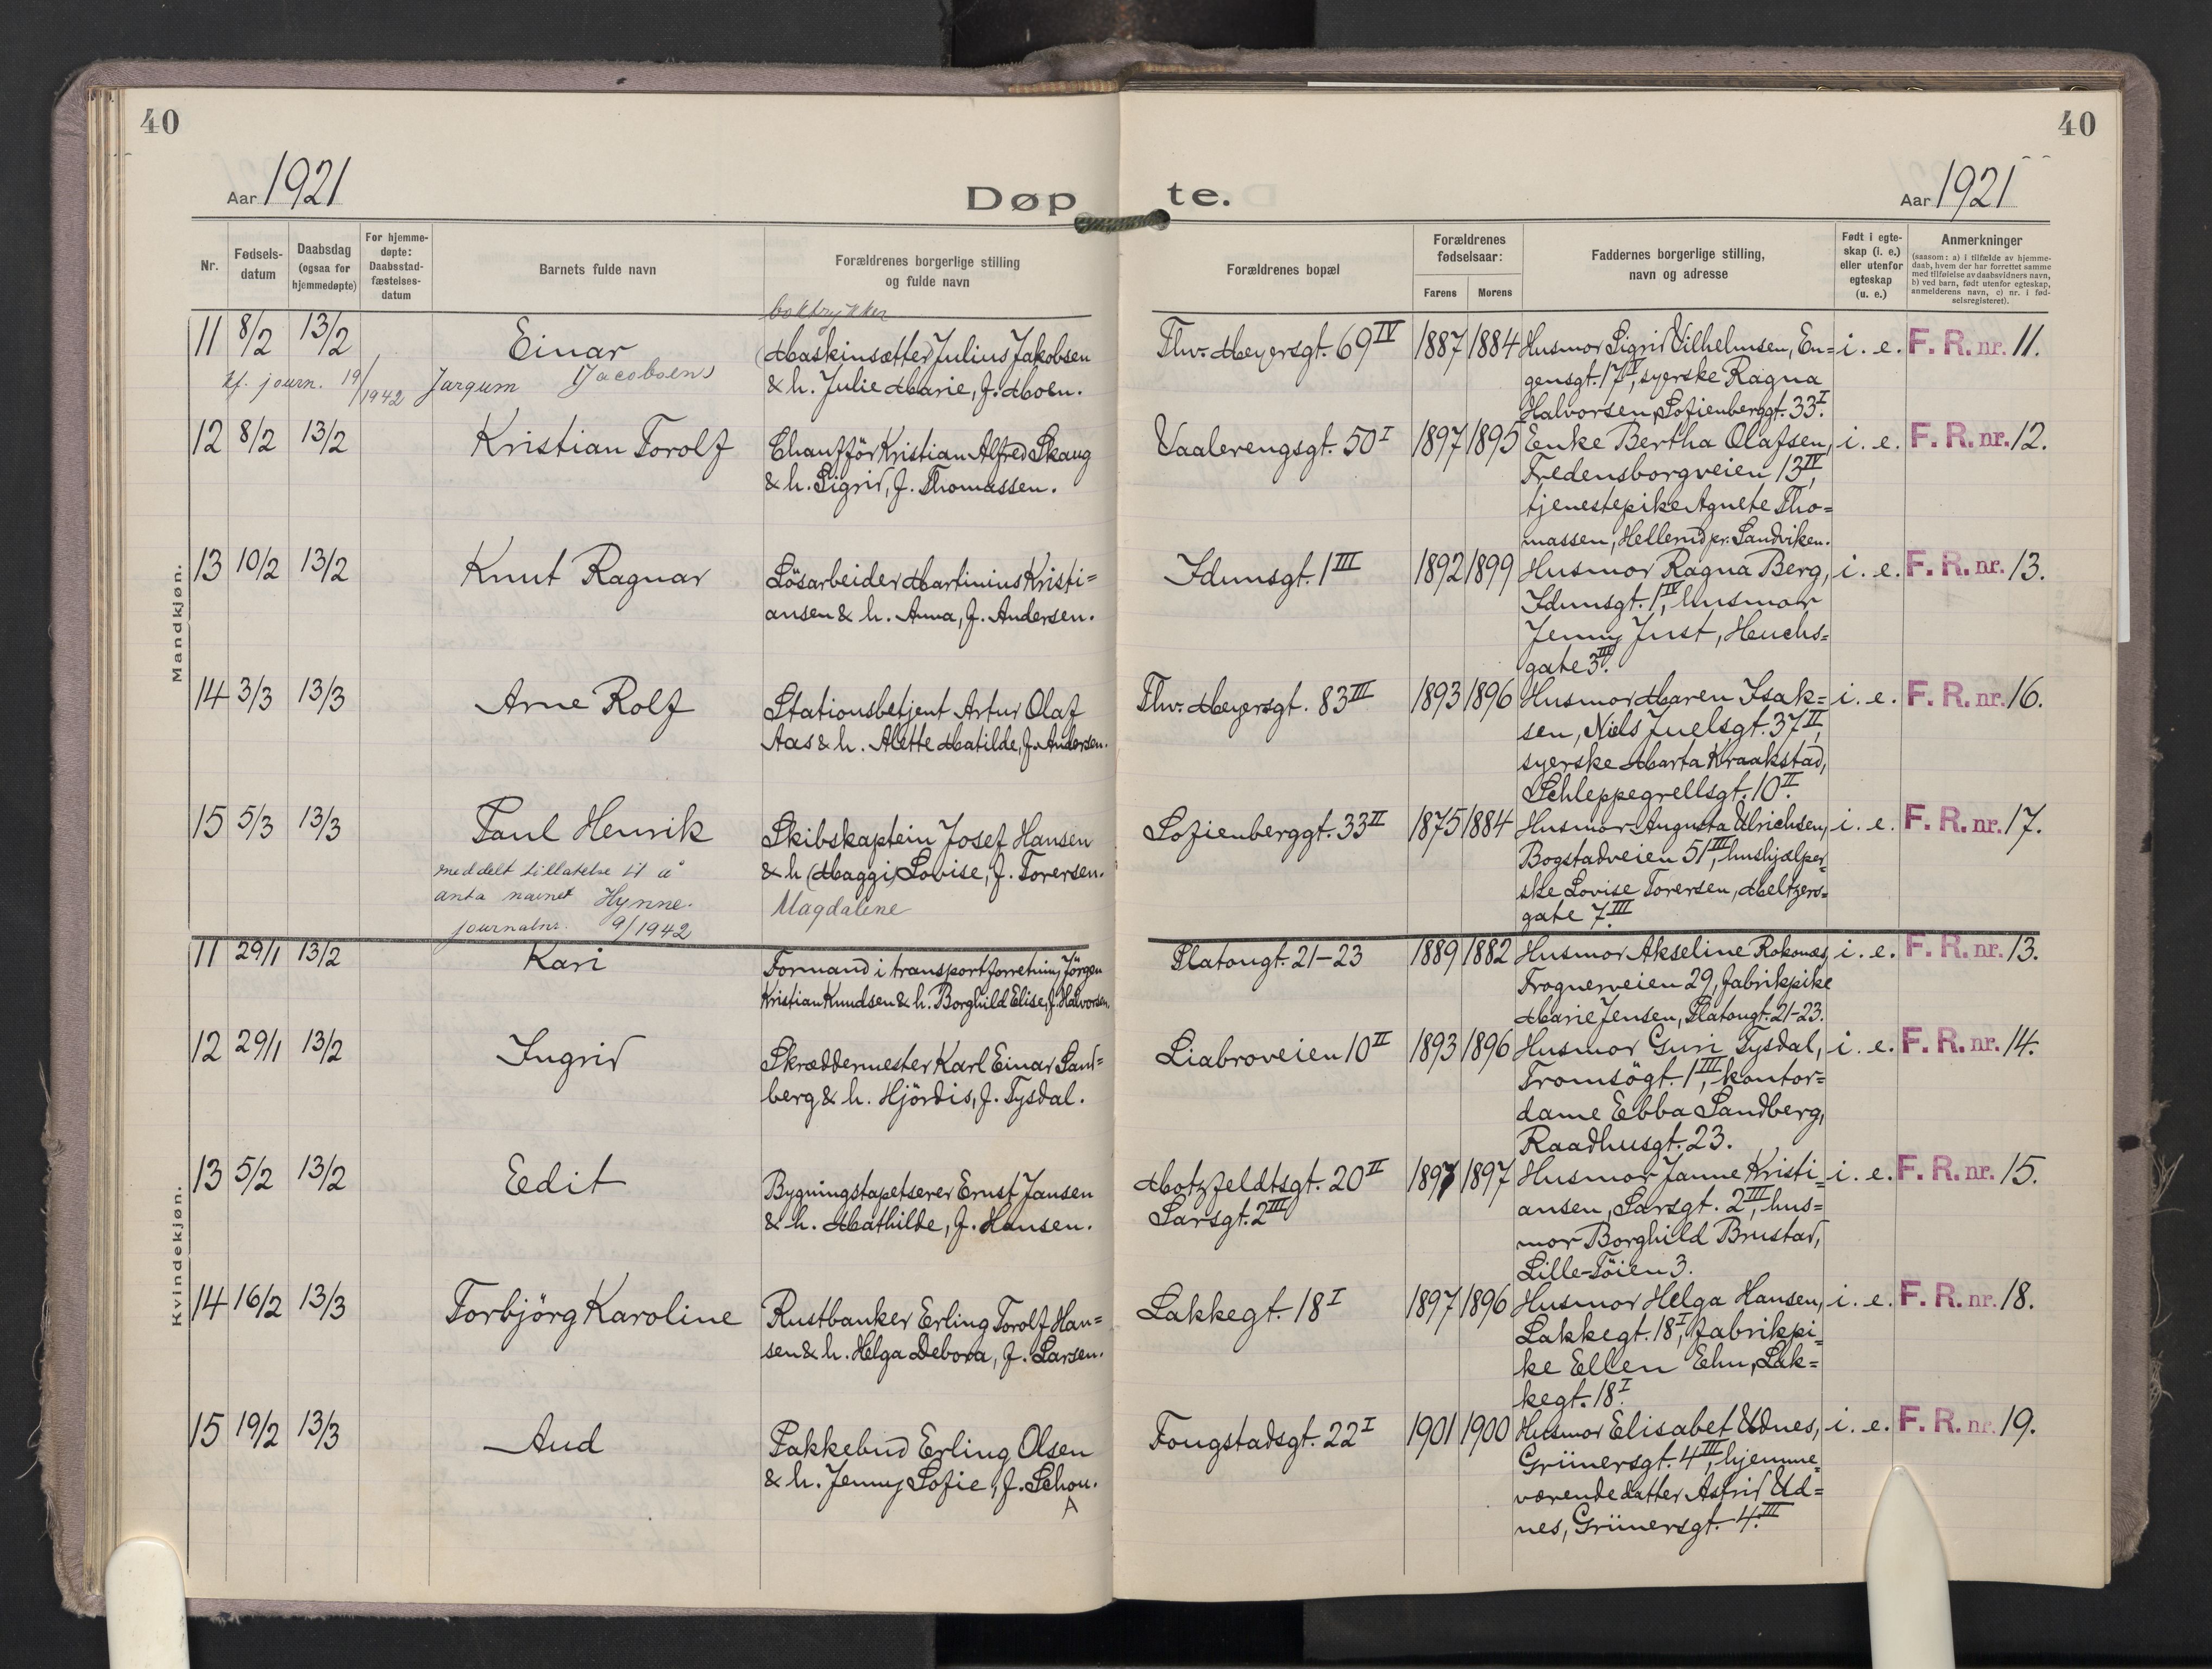 40
40
Aar 1921
Døpte.
Aar 1921
Nr.
Fødsels-
datum
Daabsdag
(ogsaa for
hjemmedøpte)
For hjemme-
døpte:
Daabsstad-
fæstelses-
datum
Barnets fulde navn
Forældrenes borgerlige stilling
og fulde navn
Forældrenes bopæl
Forældrenes
fødselsaar:
Farens
Morens
Faddernes borgerlige stilling,
navn og adresse
Født i egte-
skap (i. e.)
eller utenfor
egteskap
(u. e.)
Anmerkninger
(saasom: a) i tilfælde av hjemme-
daab, hvem der har forrettet samme
med tilføielse av daabsvidners navn,
b) ved barn, født utenfor egteskap,
anmelderens navn, c) nr. i fød-
selsregisteret).
Mandkjøn.
boktrykker
11 8/2 13/2 Einar
(Maskinsætter) Julius Jakobsen
& h. Julie Marie, f. Moen.
journ. 19/1942 Jargum Jacobsen
Thv. Meyersgt. 69 IV 1887 1884
Husmor Sigrid Vilhelmsen, En=
gensgt. 17 I, syerske Ragna
Halvorsen, Sofienberggt. 33 I.
i. e. F. R. nr. 11.
12 8/2 13/2 Kristian Torolf
Chaufför Kristian Alfred Skaug
& h. Sigrid, f. Thomassen.
Vaalerengsgt. 50 I 1897 1895
Enke Bertha Olafsen,
Fredensborgveien 13 IV,
tjenestepike Agnete Tho=
massen, Hellerud pr. Sandviken.
i. e. F. R. nr. 12.
13 10/2 13/2 Knut Ragnar
Lösarbeider Martinius Kristi=
ansen & h. Anna, f. Andersen.
Idunsgt. 1 III 1892 1899
Husmor Ragna Berg,
Idunsgt. 1 IV, husmor
Jenny Just, Heuchs=
gate 3 III.
i. e. F. R. nr. 13.
14 3/3 13/3 Arne Rolf
Stationsbetjent Artur Olaf
Aas & h. Alette Matilde, f. Andersen.
Thv. Meyersgt. 83 III 1893 1896
Husmor Maren Isak=
sen, Niels Juelsgt. 37 II,
syerske Marta Kraakstad,
Schleppegrellsgt. 10 II.
i. e. F. R. nr. 16.
15 5/3 13/3 Paul Henrik
meddelt tillatelse til å
anta navnet Hynne.
journalnr. 9/1942
Skibskaptein Josef Hansen
& h. (Maggi) Lovise, f. Torersen.
Magdalene
Sofienberggt. 33 II 1875 1884
Husmor Augusta Ulrichsen,
Bogstadveien 51 III, hushjælper=
ske Lovise Torersen, Meltzers=
gate 7 III
i. e. F. R. nr. 17.
Kvindekjøn.
11 29/1 13/2 Kari
Formand i transportforretning Jörgen
Kristian Knudsen & h. Borghild Elise, f. Halvorsen.
Platougt. 21-23 1889 1882
Husmor Akseline Roknæs,
Frognerveien 29, fabrikpike
Marie Jensen, Platougt. 21-23.
i. e. F. R. nr. 13.
12 29/1 13/2 Ingrid
Skræddermester Karl Einar Sand=
berg & h. Hjördis, f. Tysdal.
Liabroveien 10 II 1893 1896
Husmor Guri Tysdal,
Tromsögt. 1 III, kontor=
dame Ebba Sandberg,
Raadhusgt. 23.
i. e. F. R. nr. 14.
13 5/2 13/2 Edit
Bygningstapetserer Ernst Jansen
& h. Mathilde, f. Hansen.
Motzfeldtsgt. 20 II
Larsgt. 2 III
1897 1897
Husmor Janne Kristi=
ansen, Larsgt. 2 III, hus=
mor Borghild Brustad,
Lille-Töien 3.
i. e. F. R. nr. 15.
14 16/2 13/3 Torbjörg Karoline
Rustbanker Erling Torolf Han=
sen & h. Helga Debora, f. Larsen.
Lakkegt. 18 I 1897 1896
Husmor Helga Hansen,
Lakkegt. 18 I, fabrikpi=
ke Ellen Ehn, Lak=
kegt. 18 I
i. e. F. R. nr. 18.
15 19/2 13/3 Aud
Pakkebud Erling Olsen
& h. Jenny Sofie, f. Schou.
A
Fougstadsgt. 22 I 1901 1900
Husmor Elisabet Udnes,
Grünersgt. 4 III, hjemme=
værende datter Astrid Ud=
nes, Grünersgt. 4 III
i. e. F. R. nr. 19.